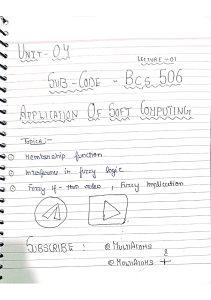 UNIT-04
LECTURE-01
SUB-CODE - BCS 506
APPLICATION OF SOFT COMPUTING
Topics:-
① Membership function
② Interference in fuzzy logic
③ Fuzzy if-then rules, Fuzzy implication
SUBSCRIBE : @ MULTIATOMS
&
@ MULTIATOMS +